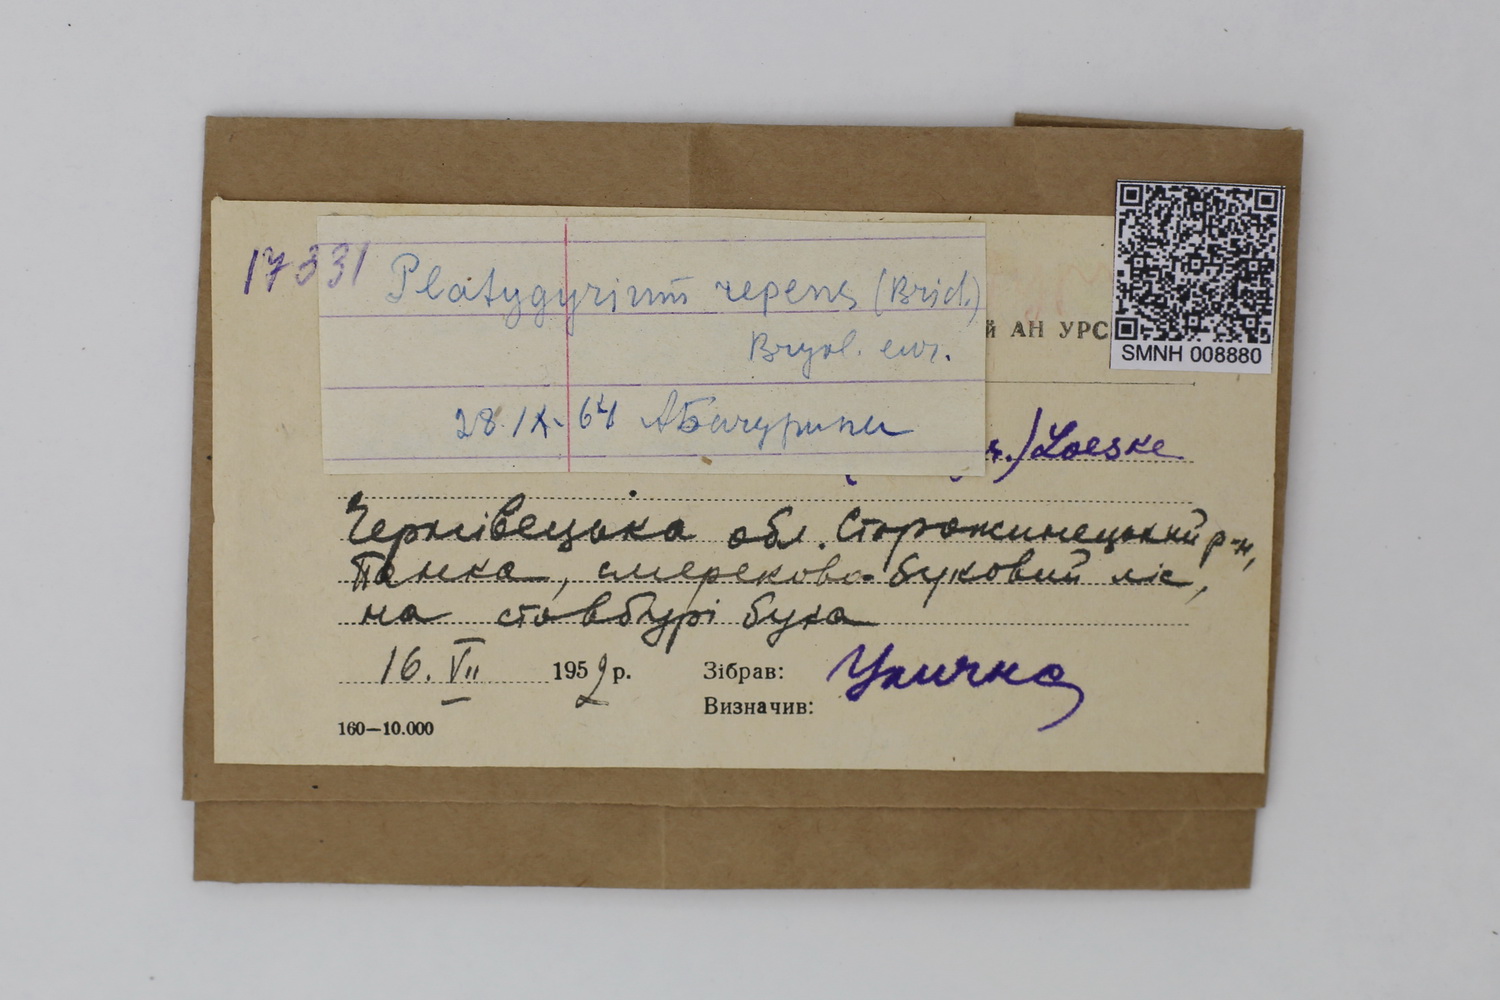 17331
Platygyrium repens (Brid.)
Bryol. eur.
28.IX.64 АБачурина
й АН УРС
SMNH 008880
r.) Loeske
Чернівецька обл. Сторожинецький р-н,
Панка, смереково-буковий ліс,
на стовбурі бука
16. VII 1952 р.
Зібрав: Уличка
Визначив:
160—10.000